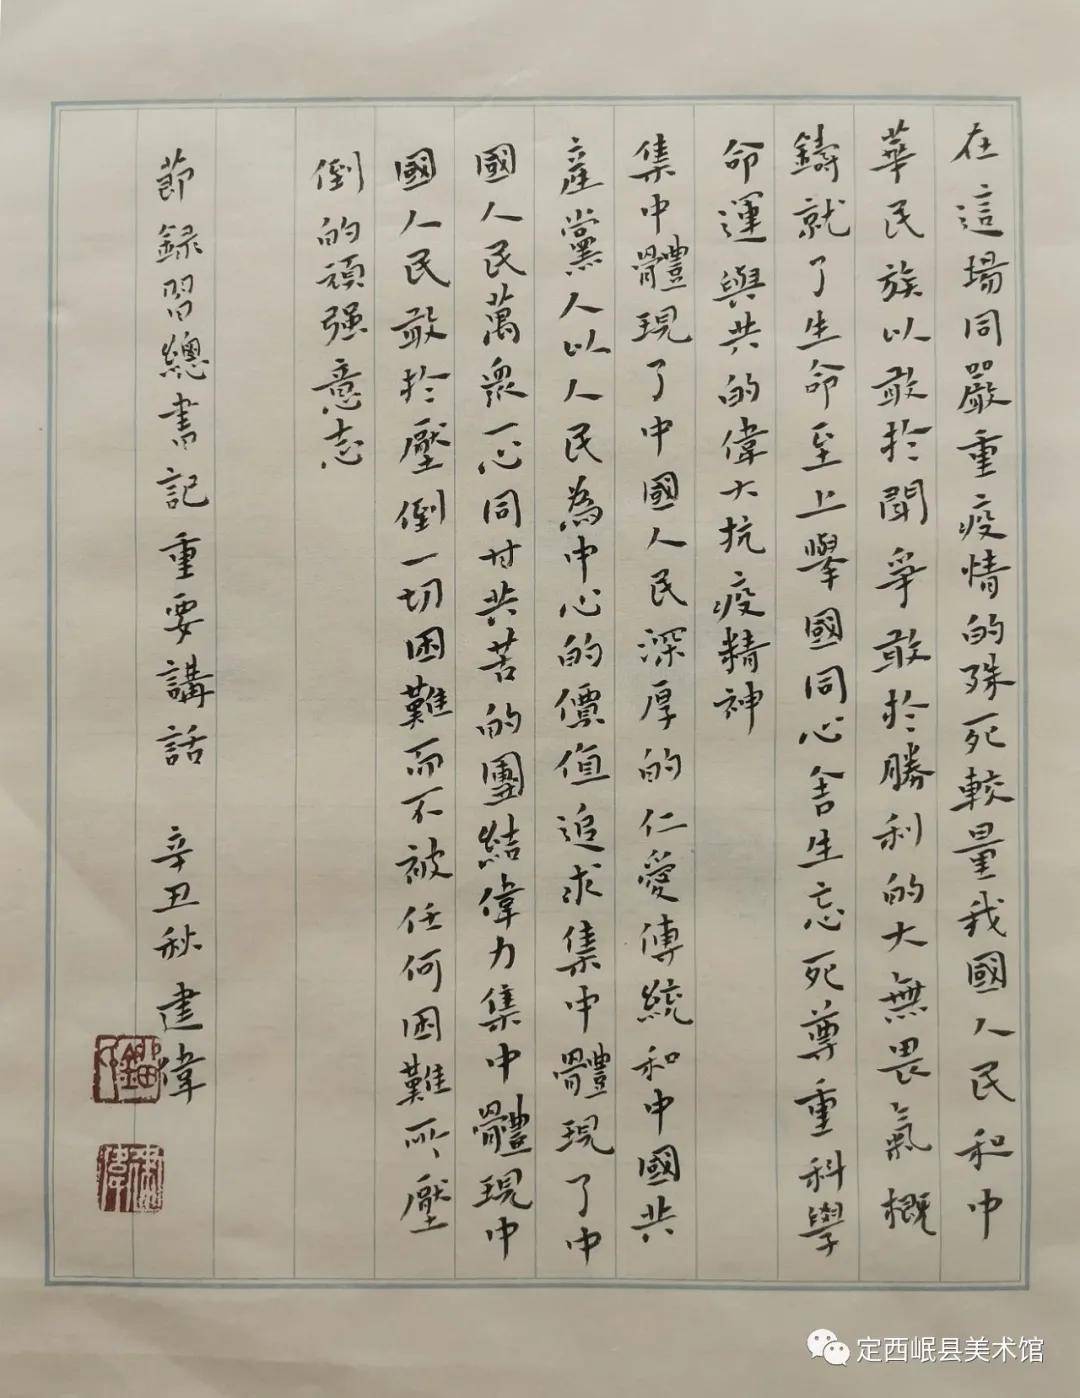 在這場同嚴重疫情的殊死較量我國人民和中
華民族以敢於鬥爭敢於勝利的大無畏氣概
鑄就了生命至上舉國同心舍生忘死尊重科學
命運與共的偉大抗疫精神
集中體現了中國人民深厚的仁愛傳統和中國共
產黨人以人民為中心的價值追求集中體現了中
國人民萬衆一心同甘共苦的團結偉力集中體現中
國人民敢於壓倒一切困難而不被任何困難所壓
倒的頑强意志
節録習總書記重要講話 辛丑秋建偉
定西岷县美术馆